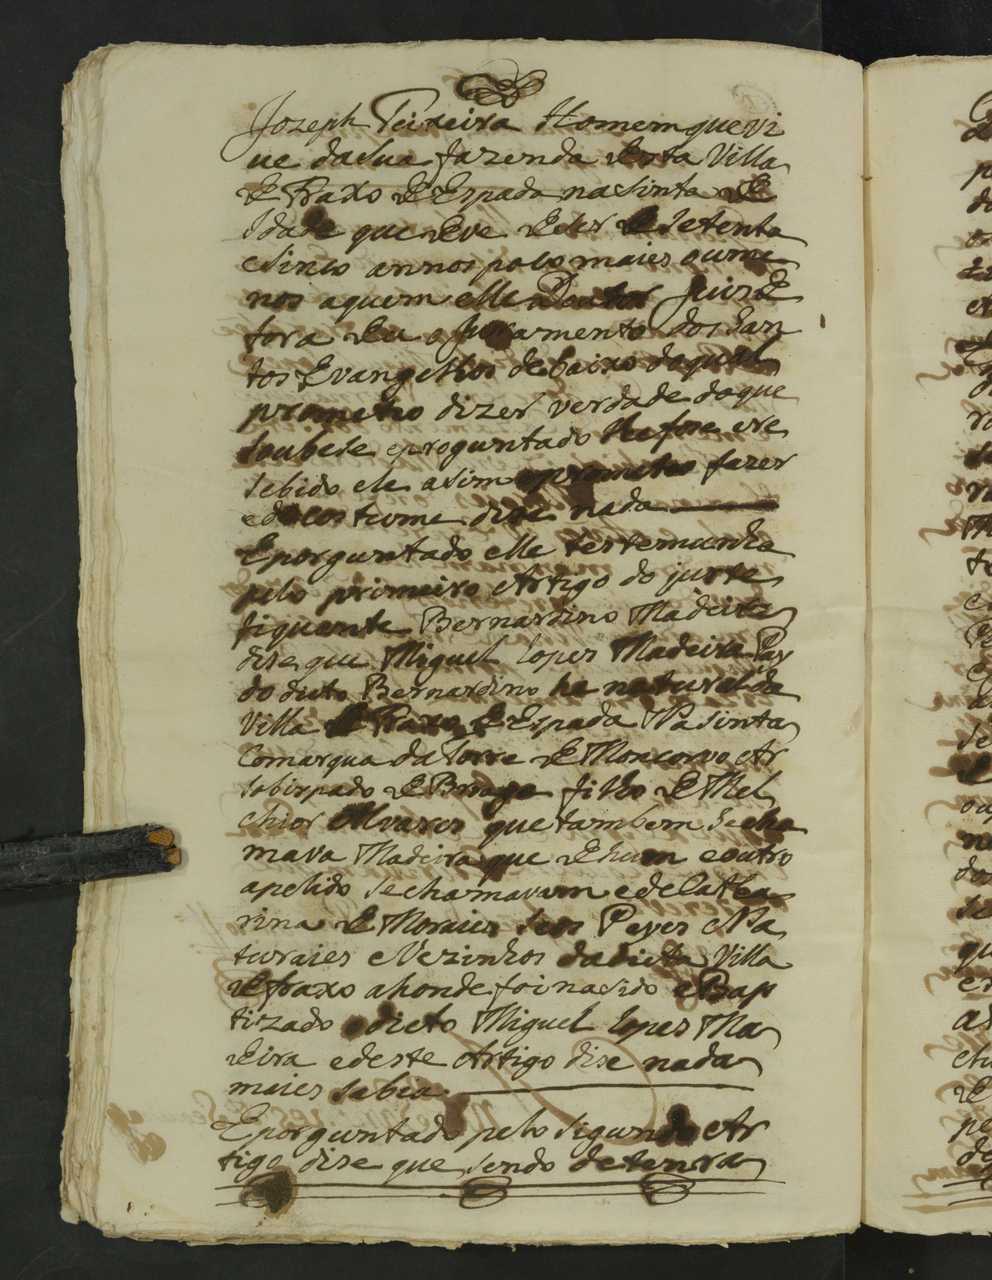 Jozeph Teixeira Homem que vi
ve da sua fazenda desta Villa
de Fraxo de Espada na Sinta de
Idade que deve de ser de setenta
e sinco annos polo maies ou me
nos a quem elle Doutor Juis de
fora deu o Juramento dos San
tos Evangelhos debaixo do qual
prometeo dizer verdade do que
soubese e proguntado lhe fose e re
sebido ele asim o prometeo fazer
e do costume dise nada
E porguntado elle testemunha
pelo primeiro Artigo do juste
ficante Bernardino Madeira
dise que Miguel Lopes Madeira Pay
do dicto Bernardino he natural da
Villa de Fraxo de Espada Na Sinta
Comarqua da Torre de Moncorvo Ar
sebispado de Braga filho de Mel
chior Alvares que tambem se cha
mava Madeira que de hum e outro
apelido se chamavam e de Catha
rina de Moraies seos Peyes e Na
turaies e Vezinhos da dicta Villa
de fraxo ahonde foi nasido e Bap
tizado o dicto Miguel Lopes Ma
deira e deste Artigo dise nada
maies sabia
E porguntado pelo Sigundo Ar
tigo dise que sendo de tenra